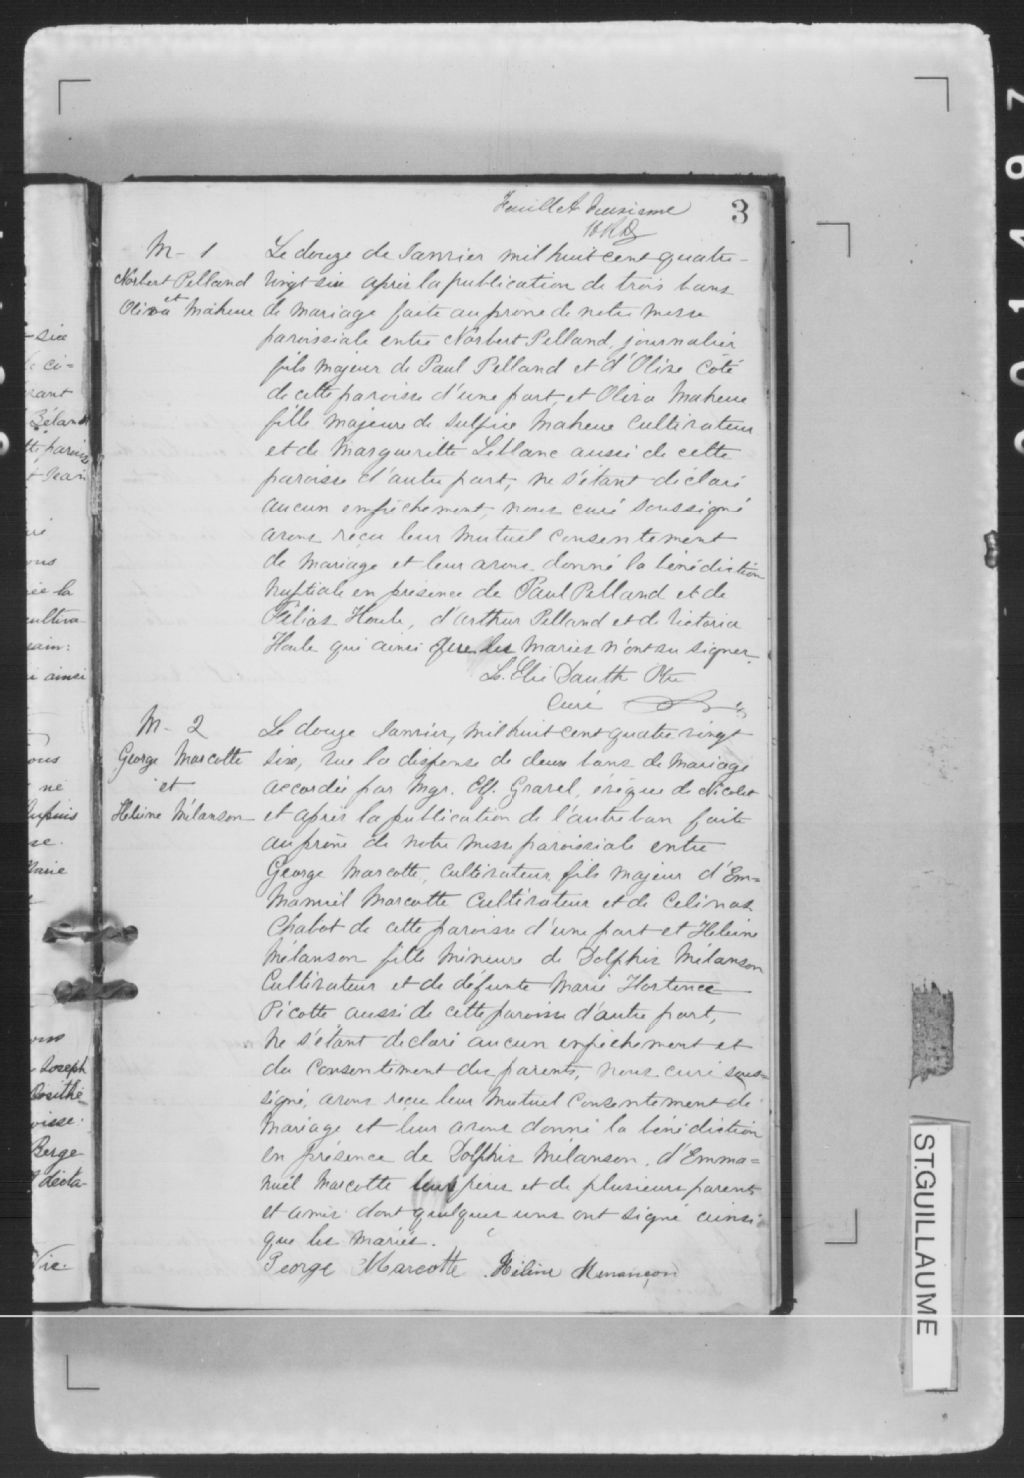 Feuillet troisième
3
M - 1
Norbert Pelland
et
Oliva Maheue
Le douze de Janvier mil huit cent quatre-
vingt six après la publication de trois bans
de mariage faite au prône de notre messe
paroissiale entre Norbert Pelland, journalier
fils majeur de Paul Pelland et d'Olize Côté
de cette paroisse d'une part, et Oliva Maheue
fille majeure de Sulpice Maheue Cultivateur
et de Margueritte Leblanc aussi de cette
paroisse d'autre part; ne s'étant déclaré
aucun empêchement, nous curé soussigné
avons reçu leur mutuel consentement
de mariage et leur avons donné la bénédiction
nuptiale en présence de Paul Pelland et de
Houle, d'Arthur Pelland et de Victoria
Houle qui ainsi que les mariés n'ont su signer.
L. Elie Dauth Ptre
Curé
M - 2
George Marcotte
et
Heleine Mélanson
Le douze Janvier, mil huit cent quatre vingt
six, vue la dispense de deux bans de mariage
accordée par Mgr. Elf. Gravel, évêque de Nicolet
et après la publication de l'autre ban faite
au prône de notre messe paroissiale entre
George Marcotte, Cultivateur, fils majeur d'Em=
manuel Marcotte Cultivateur et de Celinas
Chabot de cette paroisse d'une part et Heleine
Mélanson fille mineure de Dolphis Mélanson
Cultivateur et de défunte Marie Hortence
Picotte aussi de cette paroisse d'autre part,
ne s'étant déclaré aucun empêchement et
du consentement des parents, nous curé sous=
signé, avons reçu leur mutuel consentement de
mariage et leur avons donné la bénédiction
en présence de Dolphis Mélanson, d'Emma=
nuel Marcotte leurs pères et de plusieurs parents
et amis dont quelques uns ont signé ainsi
que les mariés.
George Marcotte Héline Menançon
ST.GUILLAUME